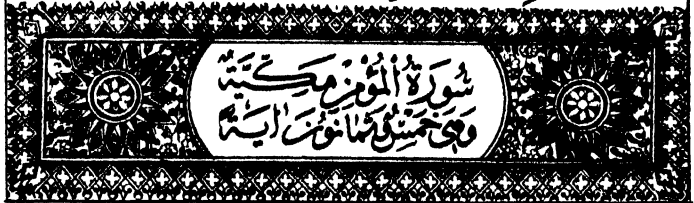 سُورَةُ الْمُؤْمِنِ مَكِّيَّةٌ
وَهِيَ خَمْسٌ وَثَمَانُونَ ءَايَةً